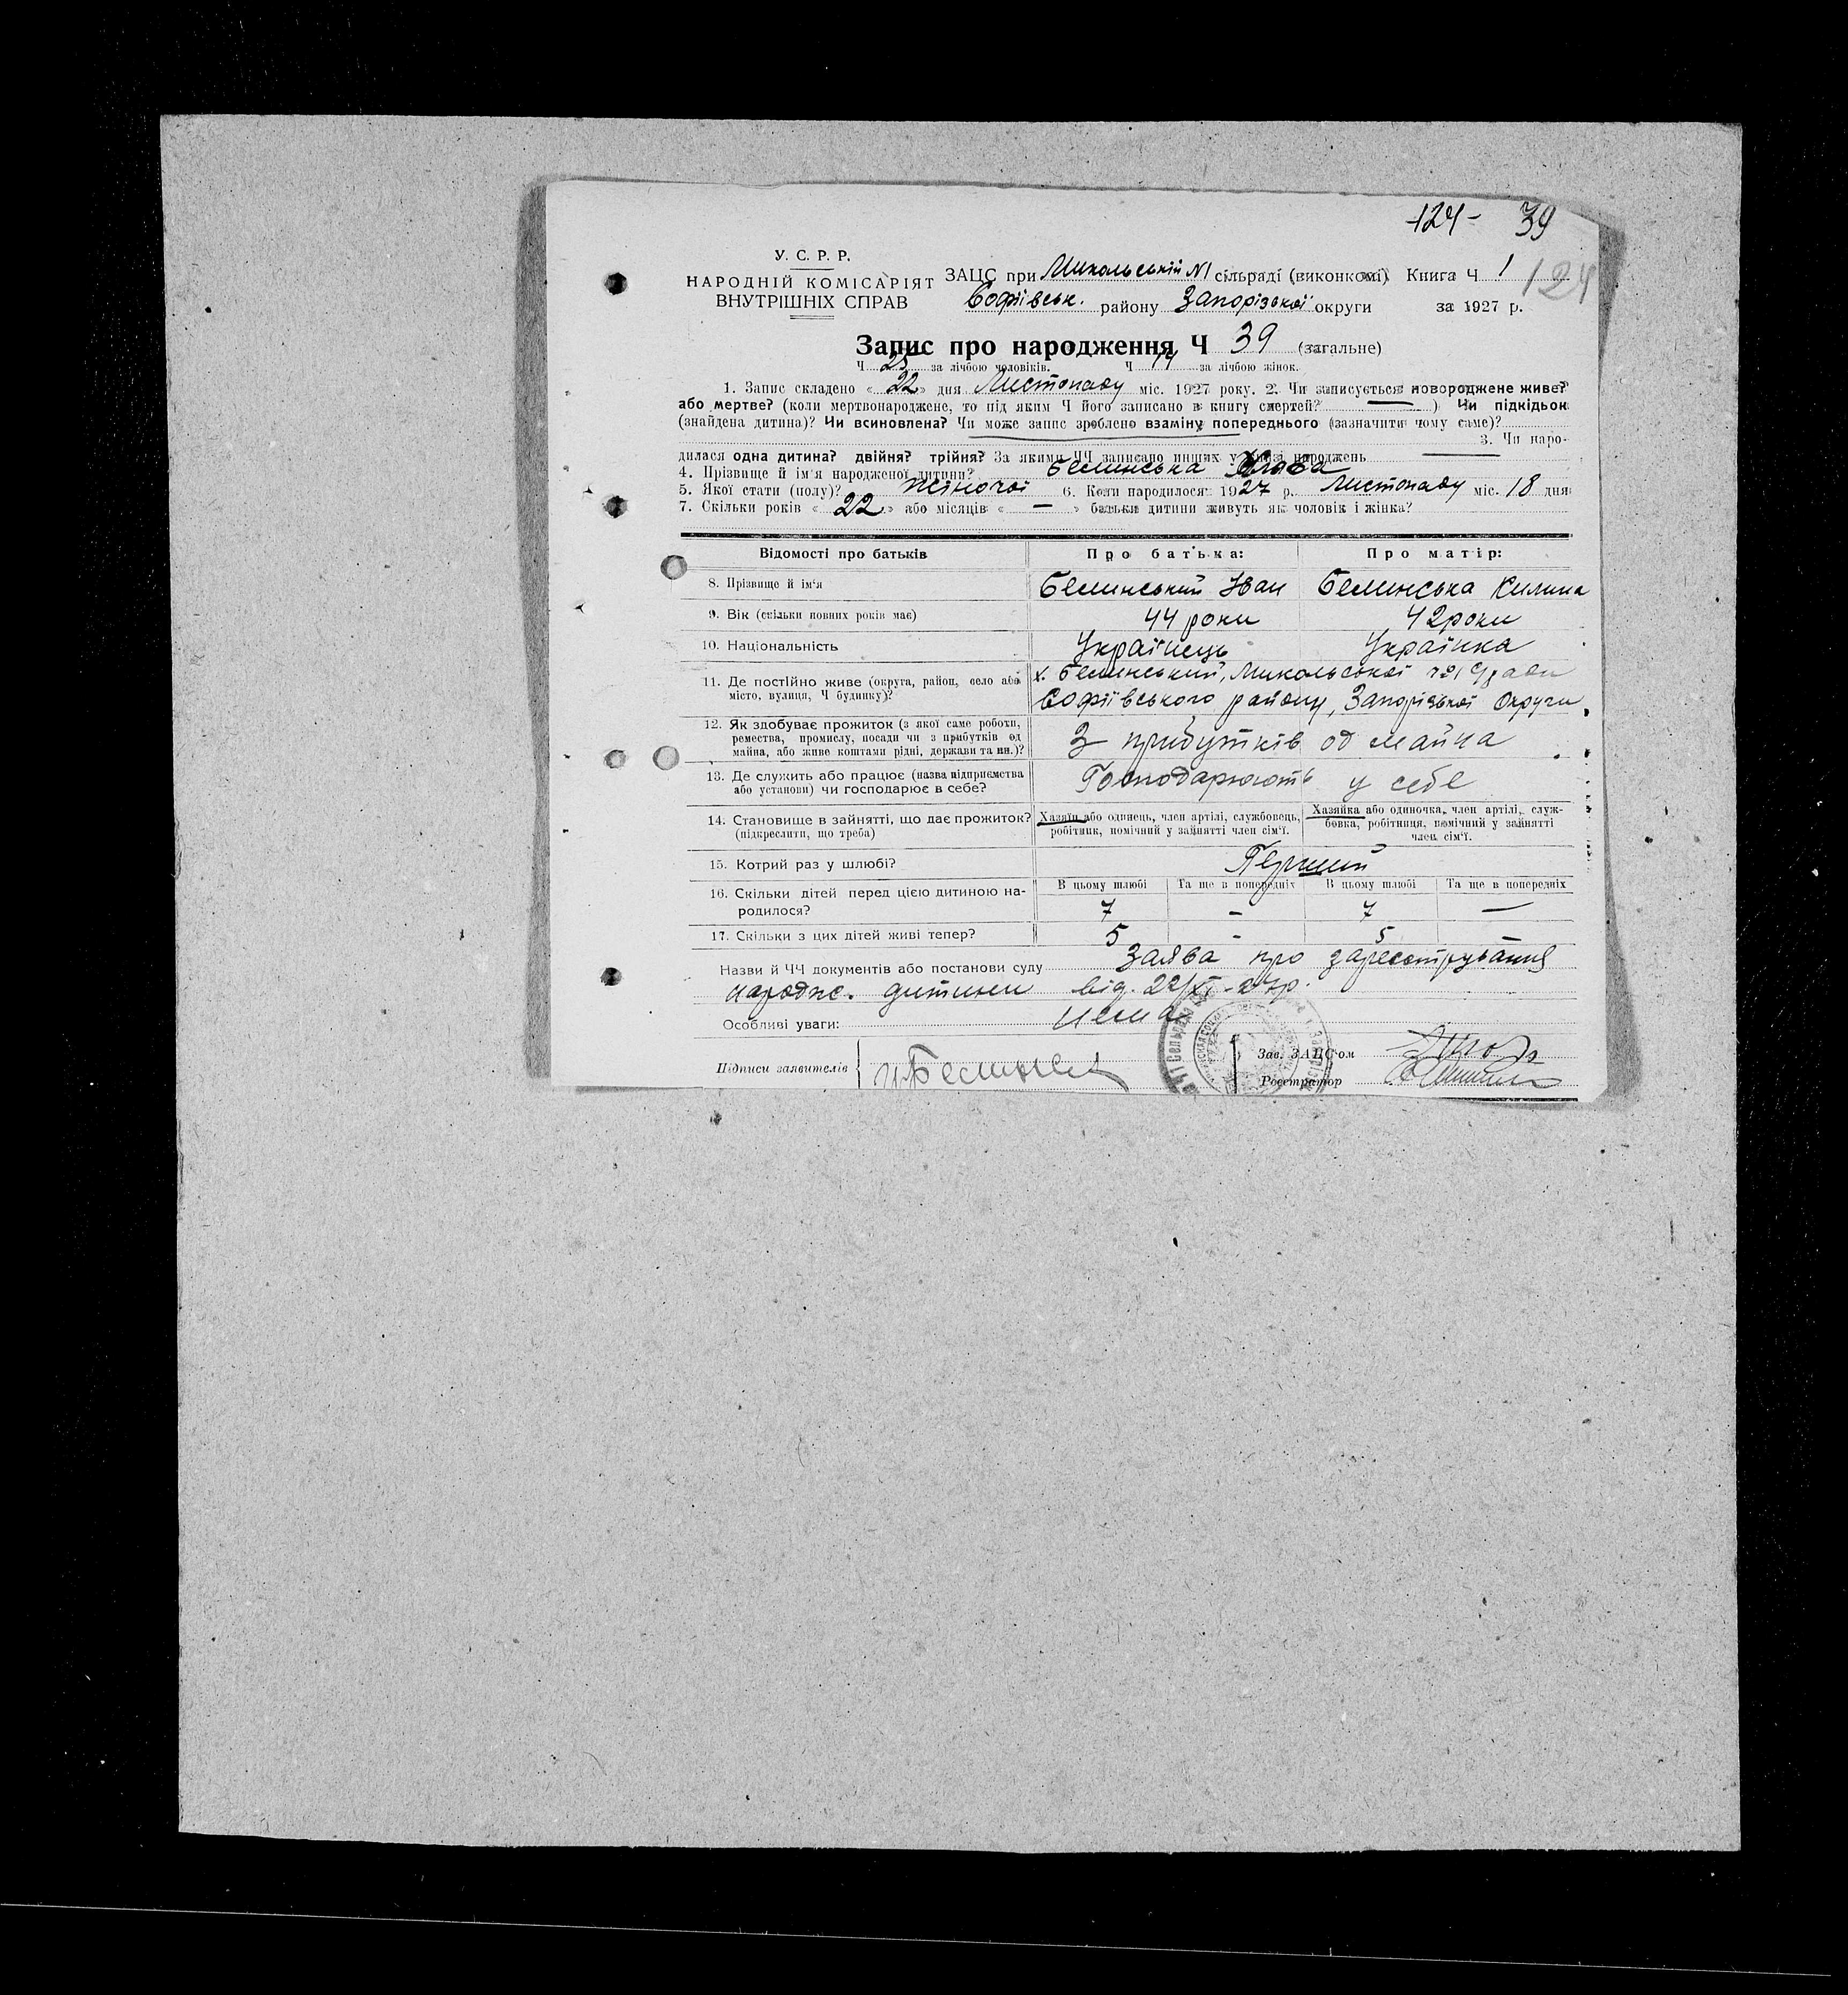 -124- 39
У. С. Р. Р.
НАРОДНІЙ КОМІСАРІЯТ
ВНУТРІШНІХ СПРАВ
ЗАЦС при Микольській №1 сільраді (виконкомі) Книга Ч 1
124
Софіївськ. району Запорізької округи за 1927 р.
Запис про народження Ч 39 (загальне)
Ч 25 за лічбою чоловіків. Ч 14 за лічбою жінок.
1. Запис складено « 22 » дня Листопаду міс. 1927 року. 2. Чи записується новороджене живе?
або мертве? (коли мертвонароджене, то під яким Ч його записано в книгу смертей? — ) Чи підкідьок
(знайдена дитина)? Чи всиновлена? Чи може запис зроблено взаміну попереднього (зазначити чому саме)?
3. Чи наро-
дилася одна дитина? двійня? трійня? За якими ЧЧ записано инших у книзі народжень —
4. Прізвище й ім'я народженої дитини? Белинська
5. Якої стати (полу)? жіночої 6. Коли народилося: 1927 р. Листопаду міс. 18 дня
7. Скільки років « 22 » або місяців « — » батьки дитини живуть як чоловік і жінка?
Відомості про батьків Про батька: Про матір:
8. Прізвище й ім'я Белинський Іван Белинська Килина
9. Вік (скільки повних років має) 44 роки 42 роки
10. Національність Українець Українка
11. Де постійно живе (округа, район, село або місто, вулиця, Ч будинку)? х. Белинський, Микольської №1 С/ради
Софіївського району, Запорізької Округи
12. Як здобуває прожиток (з якої саме роботи, ремества, промислу, посади чи з прибутків од майна, або живе коштами рідні, держави та ин.)? З прибутків од майна
13. Де служить або працює (назва підприємства або установи) чи господарює в себе? Господарюють у себе
14. Становище в зайнятті, що дає прожиток? (підкреслити, що треба) Хазяїн або одинець, член артілі, службовець, робітник, помічний у зайнятті член сім'ї. Хазяйка або одиночка, член артілі, служ-бовка, робітниця, помічний у зайнятті член сім'ї.
15. Котрий раз у шлюбі? Перший
16. Скільки дітей перед цією дитиною на-родилося? В цьому шлюбі Та ще в попередніх В цьому шлюбі Та ще в попередніх
7 - 7 —
17. Скільки з цих дітей живі тепер? 5 - 5
Назви й ЧЧ документів або постанови суду Заява про зареєстрування
народж. дитини від 22/XI-27р.
Особливі уваги: нема
Підписи заявителів
Зав. ЗАЦС'ом
Реєстратор